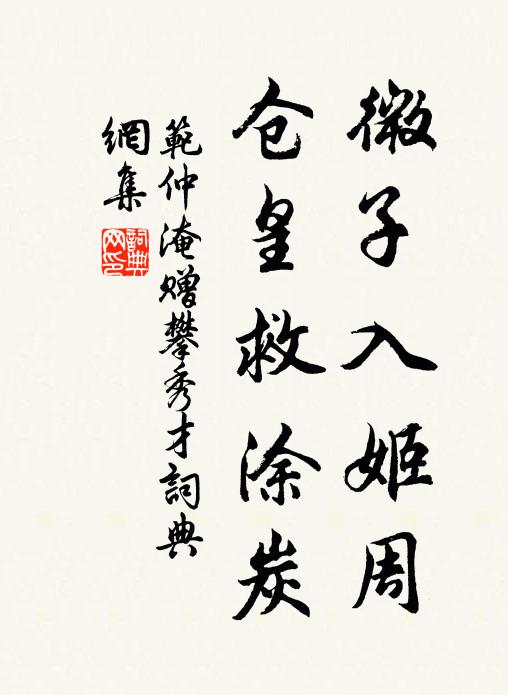 微子入姬周
仓皇救涂炭
範仲淹赠攀秀才詞典
網集
詞典
网印